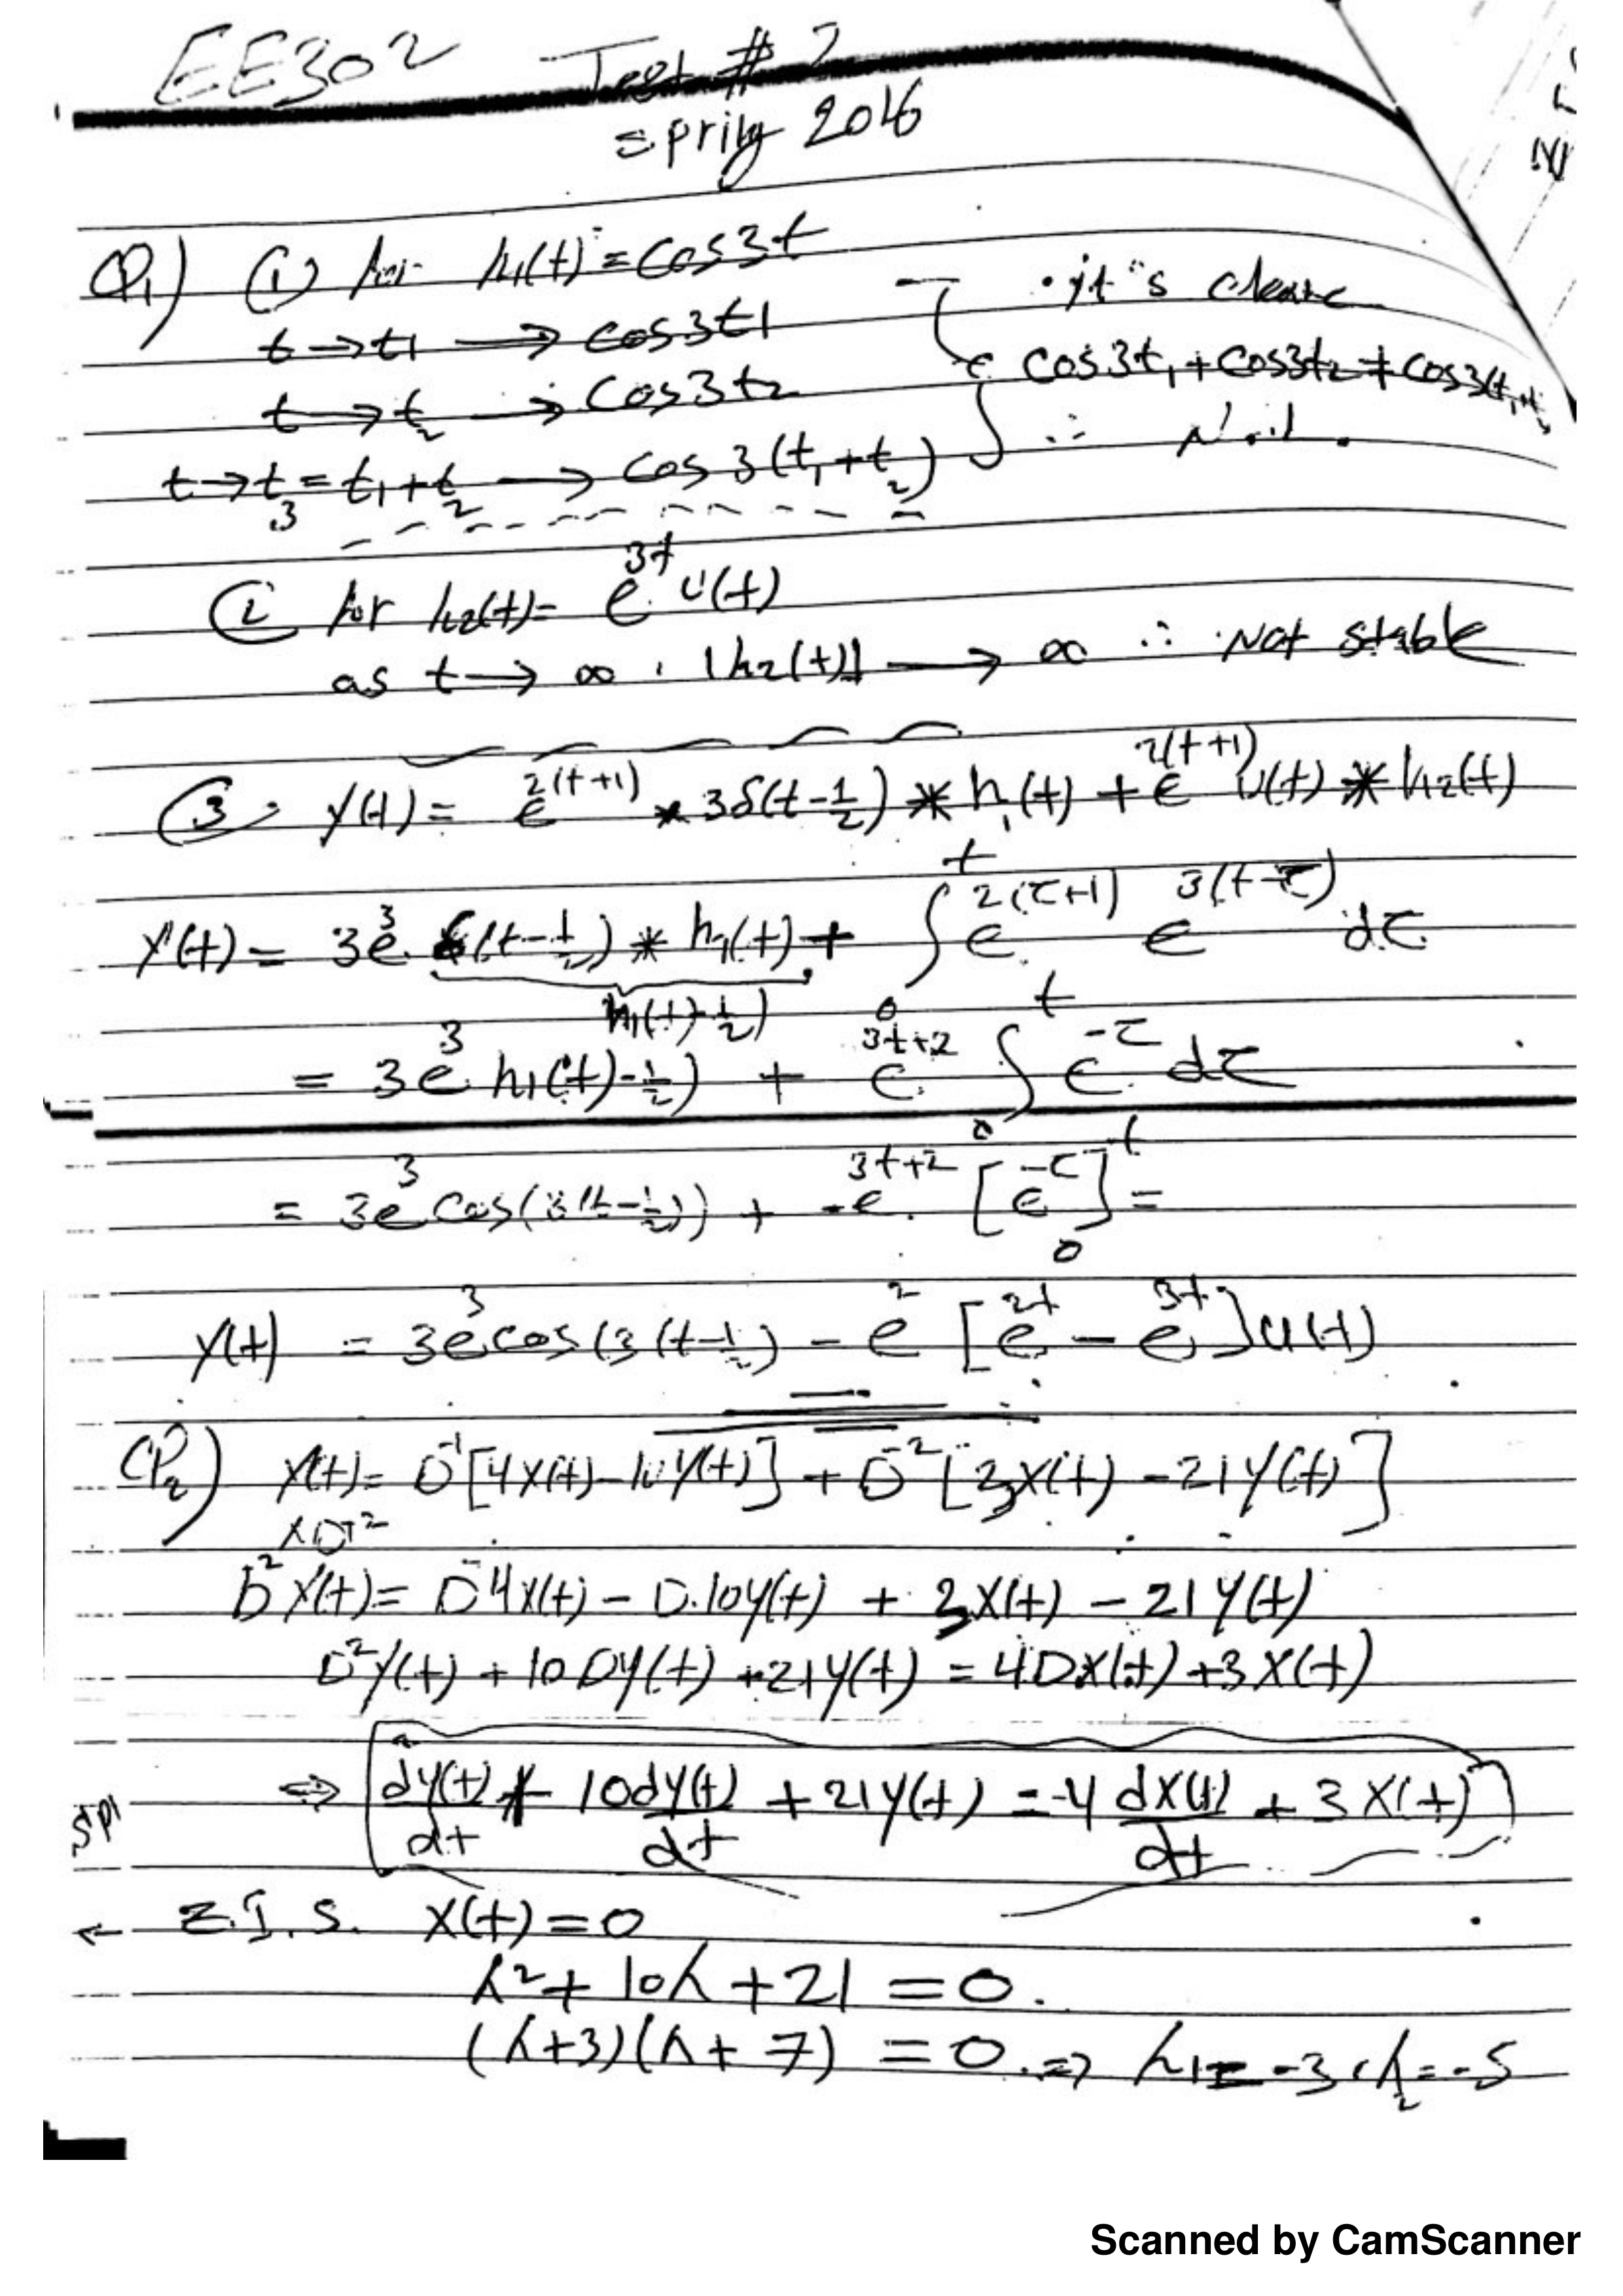 EE302 Test # 2
spring 2016
Q1) (1) for h1(t) = cos3t
it's clear
t → t1 → cos3t1
cos3t1 + cos3t2 ≠ cos3(t1+t
t → t2 → cos3t2
∴ N.
t → t3 = t1+t2 → cos 3(t1+t2)
(2 for h2(t) = e^{3t} u(t)
as t → ∞ . |h2(t)| → ∞ ∴ Not stable
(3. y(t) = e^{2(t+1)} * 3δ(t-1/2) * h1(t) + e^{2(t+1)} u(t) * h2(t)
y(t) = 3e^3 δ(t-1/2) * h1(t) + ∫_0^t e^{2(τ+1)} e^{3(t-τ)} dτ
h1(t)-1/2)
= 3e^3 h1(t)-1/2) + e^{3t+2} ∫_0^t e^{-τ} dτ
= 3e^3 cos(3(t-1/2)) + -e^{3t+2} [e^{-τ}]_0^t =
y(t) = 3e^3 cos(3(t-1/2) - e^2 [e^{2t} - e^{3t}] u(t)
Q2) y(t) = D^{-1}[4x(t)-10y(t)] + D^{-2}[3x(t) - 21y(t)]
D^2 y(t) = D4x(t) - D.10y(t) + 3x(t) - 21y(t)
D^2y(t) + 10Dy(t) + 21y(t) = 4Dx(t) + 3x(t)
⇒ d^2y(t)/dt + 10dy(t)/dt + 21y(t) = 4 dx(t)/dt + 3x(t)
← Z.I.S. x(t) = 0
λ^2 + 10λ + 21 = 0.
(λ+3)(λ+7) = 0. ⇒ λ1 = -3, λ2 = -5
Scanned by CamScanner